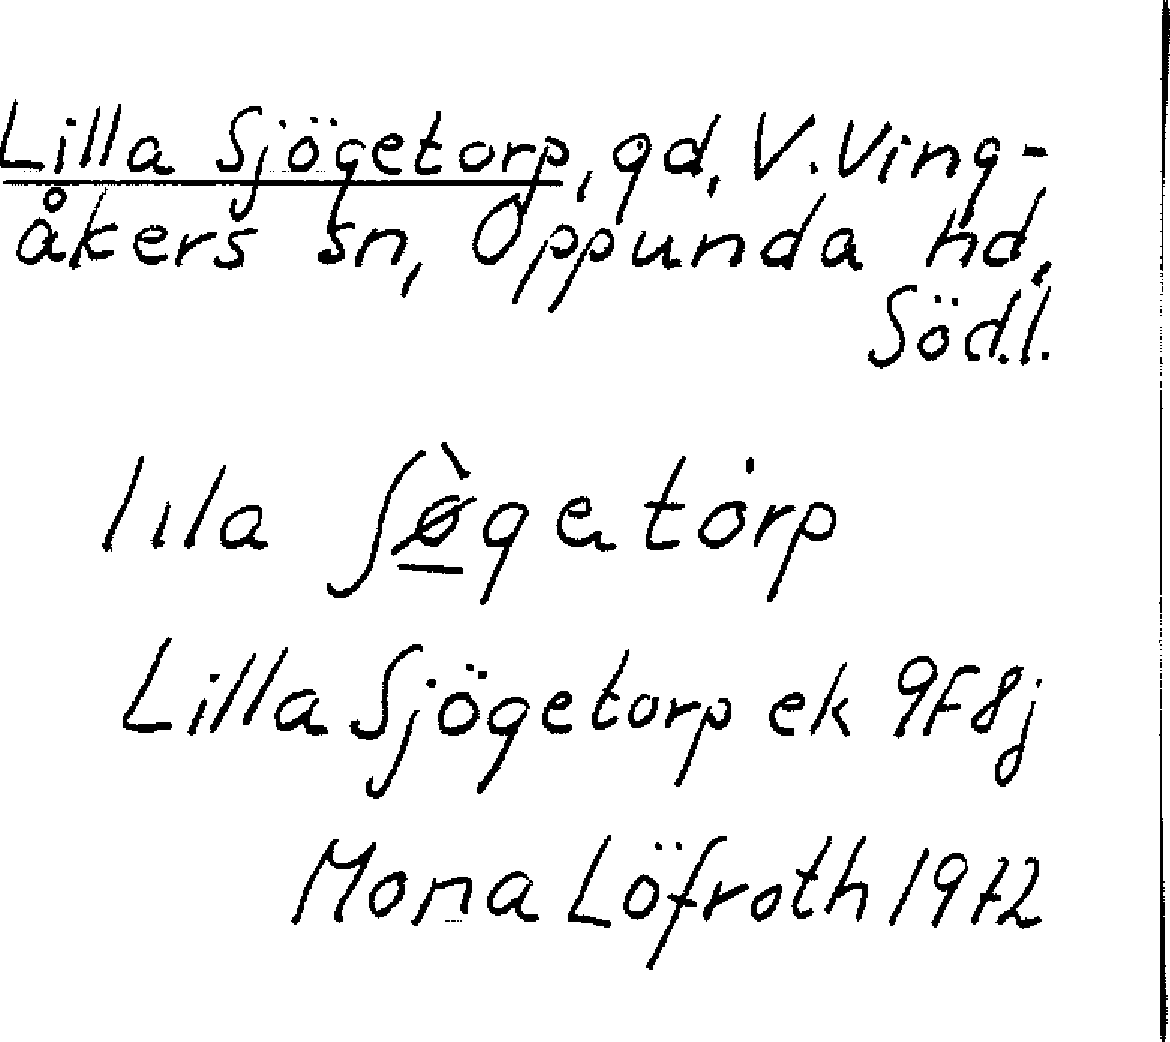 Lilla Sjögetorp, gd, V. Ving-
åkers sn, Oppunda hd,
Södl.
lıla ʃø̠̀gɐtȯrp
Lilla Sjögetorp ek 9F8j
Mona Löfroth 1972